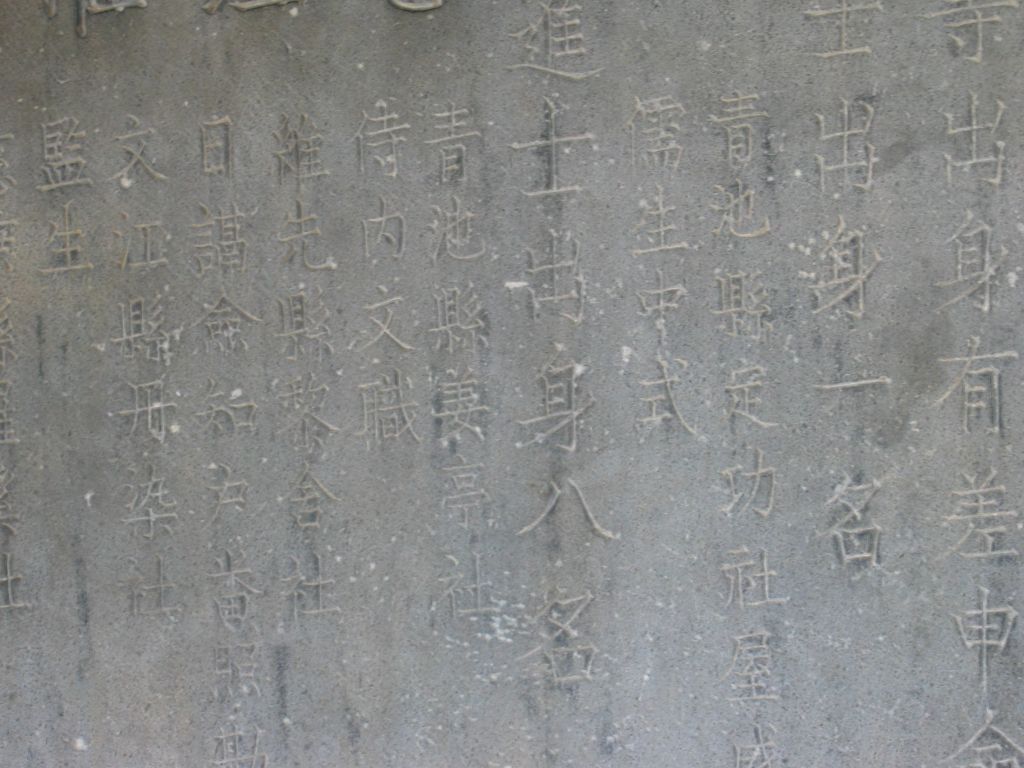 等出身有差申命
士出身一名
青池縣定功社屋成
儒生中式
進士出身八名
青池縣姜亭社
侍内文職
維先縣黎舍社
日謁僉知户畨照勘
文江縣丹染社
監生